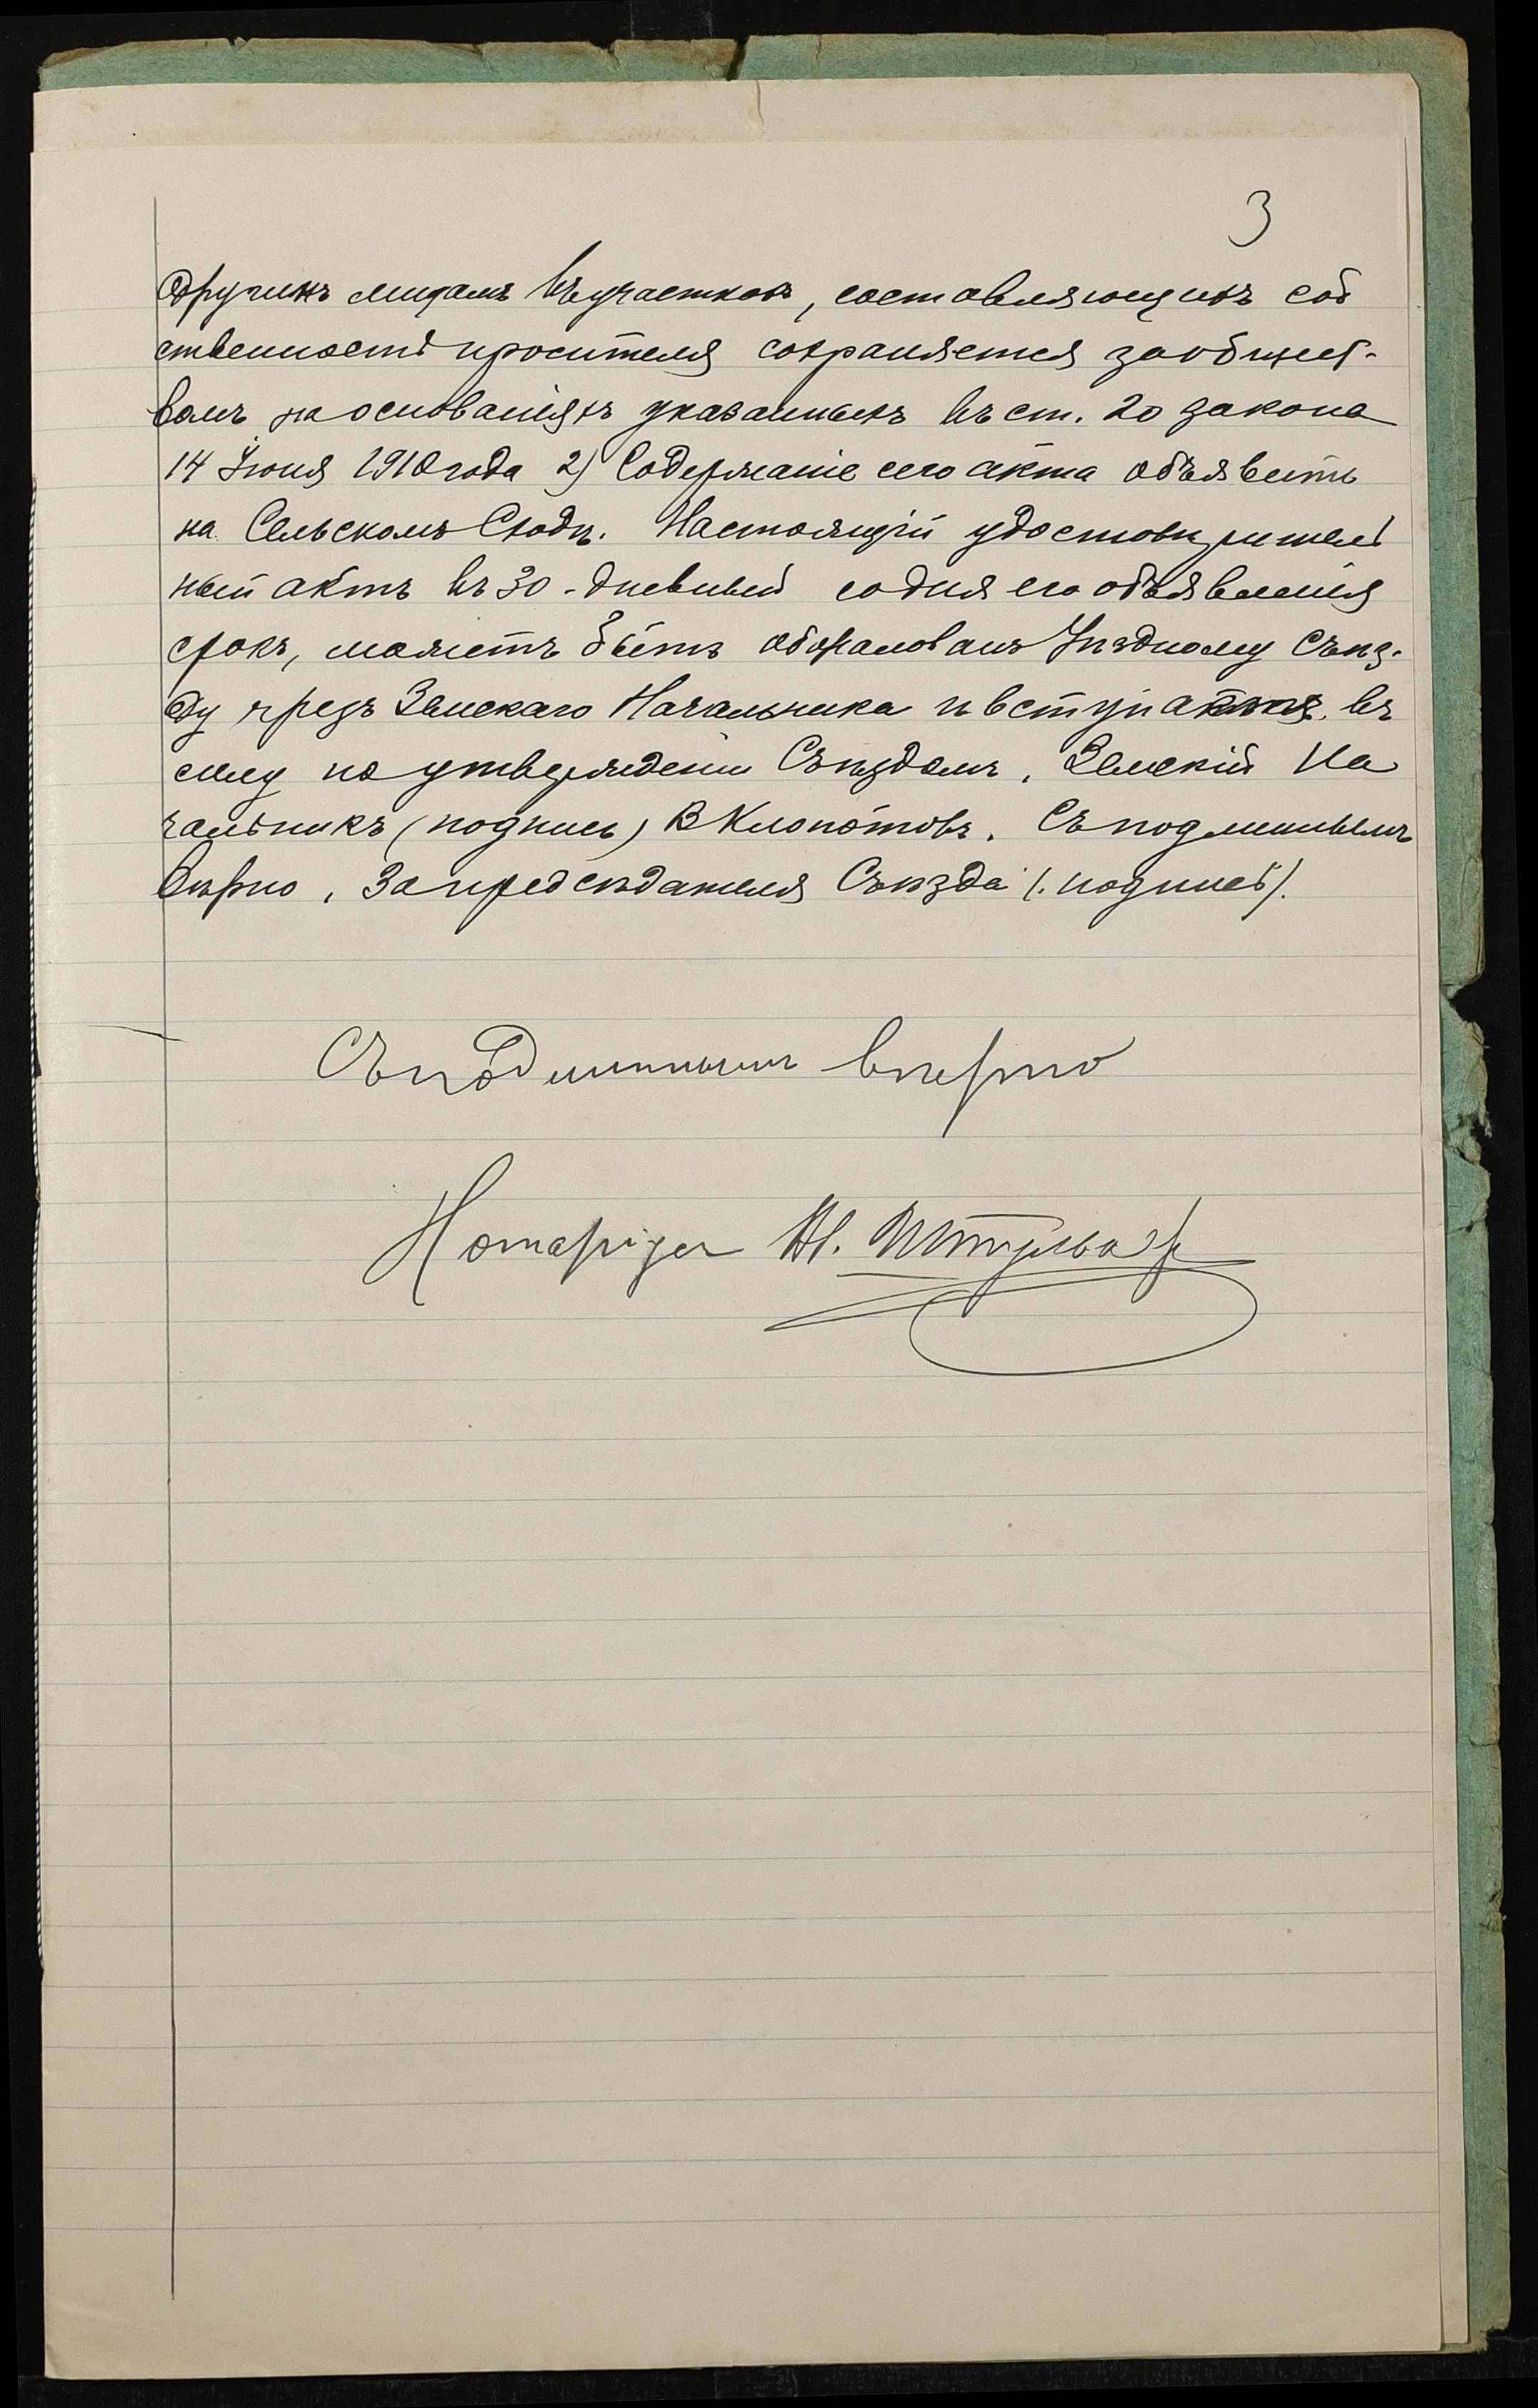 3
другимъ лицамъ въ участкахъ, составляющихъ соб
ственность просителя сохраняется за общест-
вомъ на основаніяхъ указанныхъ въ ст. 20 закона
14 Іюня 1910 года 2) Содержаніе сего акта объявить
на Сельскомъ Сходѣ. Настоящій удостовѣритель
ный актъ въ 30-дневный со дня его объявленія
срокъ, можетъ быть обжалованъ Уѣздному Съѣз-
ду чрезъ Земскаго Начальника и вступаетъ въ
силу по утвержденіи Съѣздомъ. Земскій На
чальникъ (подпись) В Клопотовъ. Съ подлиннымъ
вѣрно. За предсѣдателя Съѣзда (подпись).
Съ подлиннымъ вѣрно
Нотаріусъ